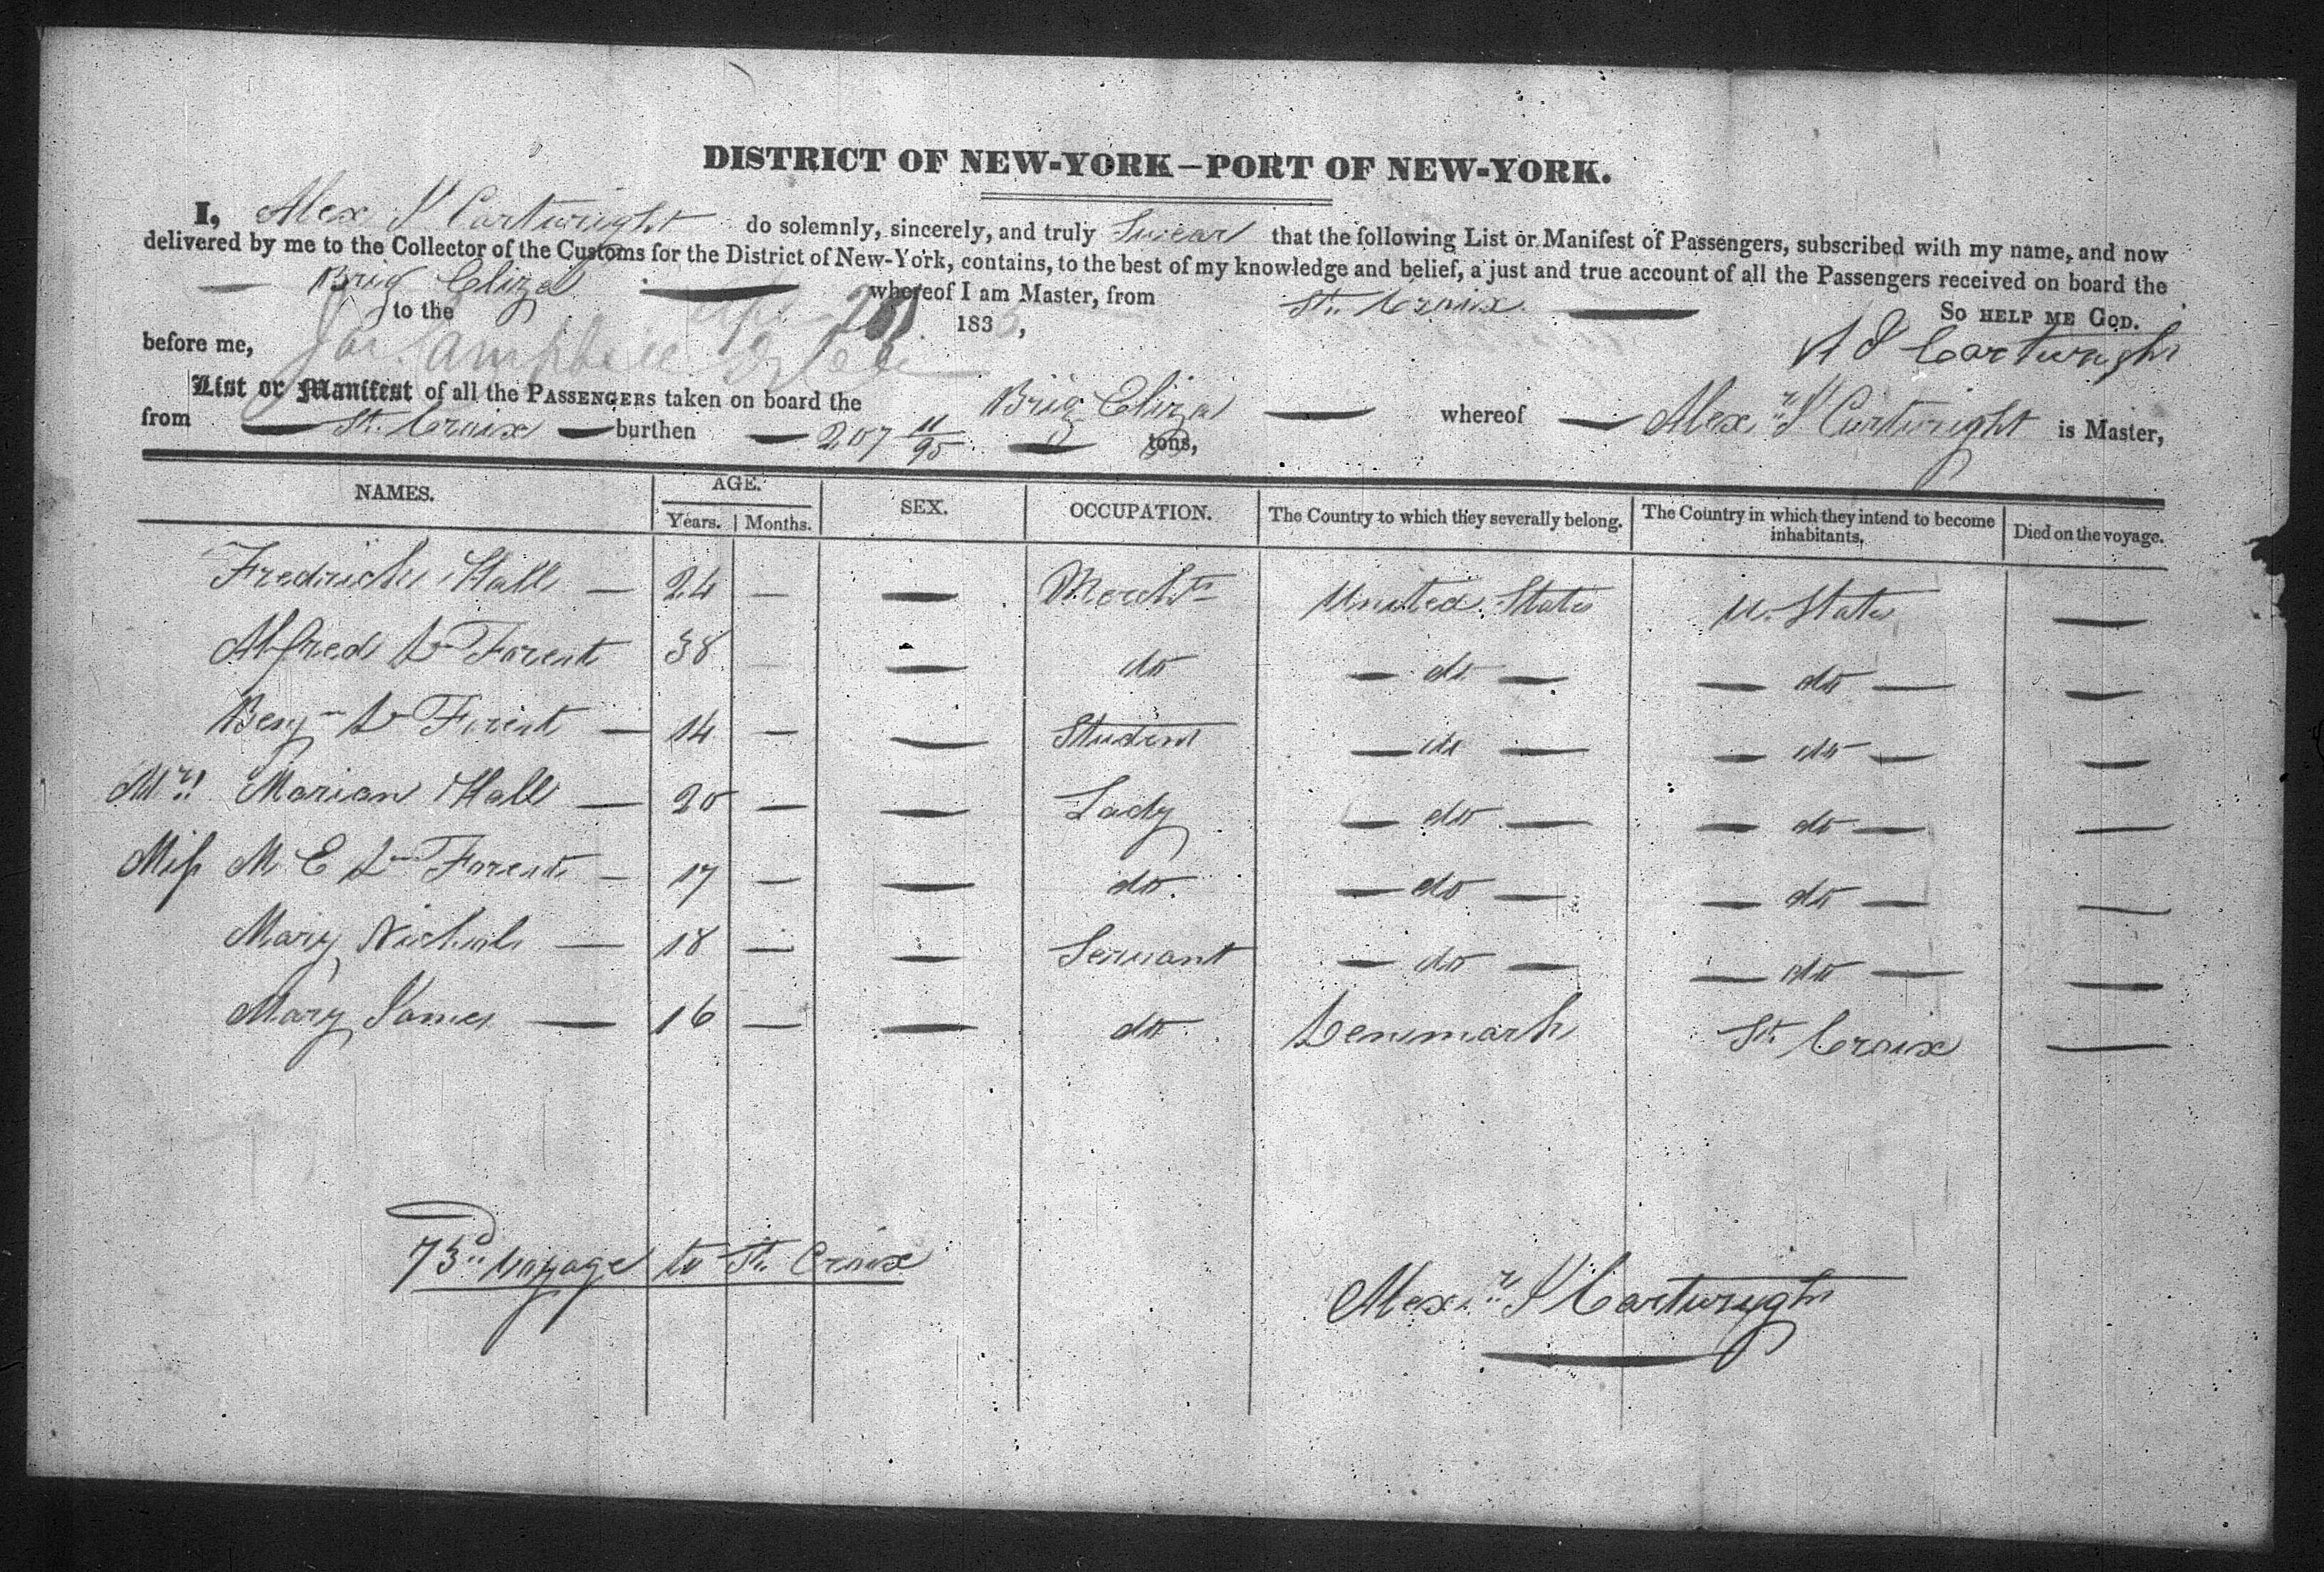 DISTRICT OF NEW-YORK—PORT OF NEW-YORK.
I, Alex J Cartwright do solemnly, sincerely, and truly Swear that the following List or Manifest of Passengers, subscribed with my name, and now
delivered by me to the Collector of the Customs for the District of New-York, contains, to the best of my knowledge and belief, a just and true account of all the Passengers received on board the
— Brig Eliza — whereof I am Master, from St. Croix —
to the 183 , So HELP ME GOD.
before me, A J Cartwright
List or Manifest of all the PASSENGERS taken on board the Brig Eliza — whereof — Alexr J Cartwright is Master,
from — St. Croix — burthen — 207 11/95 — tons,
NAMES. AGE. SEX. OCCUPATION. The Country to which they severally belong. The Country in which they intend to become inhabitants. Died on the voyage.
Years. Months.
Fredrick Hall — 24 — — Mercht United States U. States —
Alfred D Forest 38 — — do — do — — do — —
Benjn D Forest — 14 — — Student — do — — do — —
Mrs Marian Hall — 20 — — Lady — do — — do — —
Miss M. E D Forest — 17 — — do — do — — do — —
Mary Nichols — 18 — — Servant — do — — do — —
Mary James — 16 — — do Denmark St. Croix —
73d Voyage to St. Croix
Alexr J Cartwright